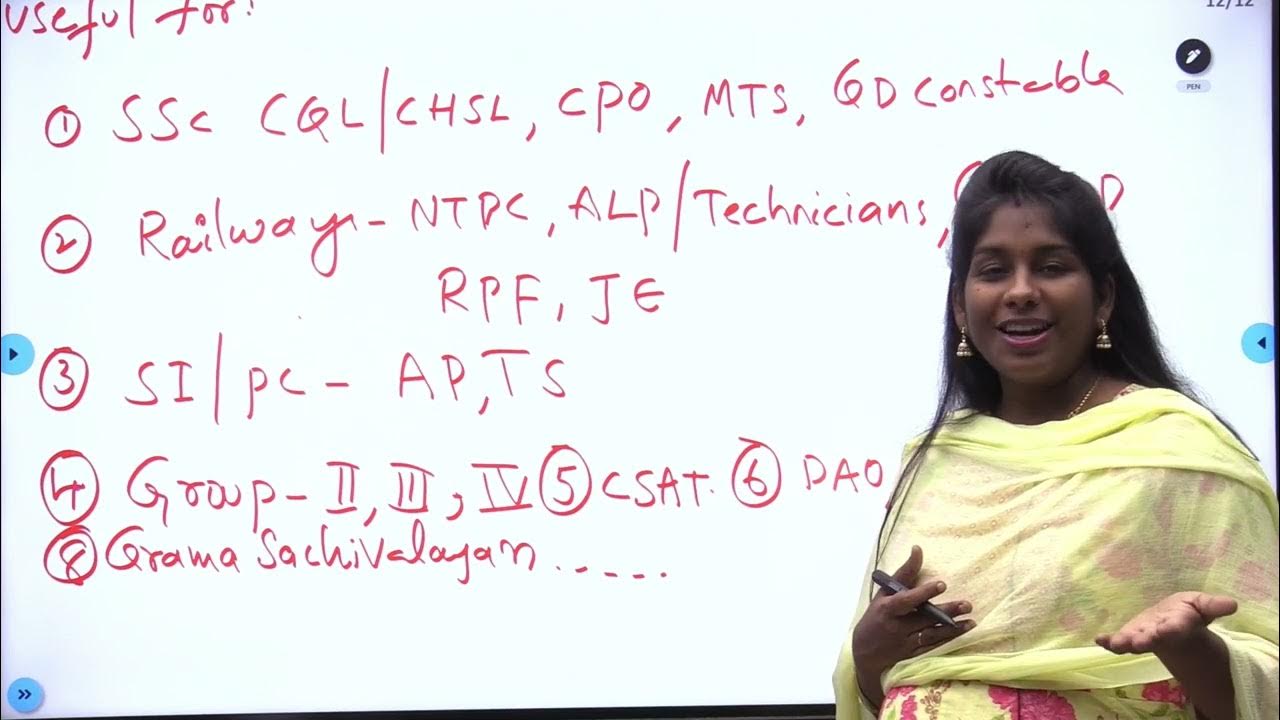 Useful for:
12/12
PEN
① SSC CGL/CHSL, CPO, MTS, GD Constable
② Railways - NTPC, ALP/Technicians, D
RPF, JE
③ SI/PC - AP, TS
④ Group - II, III, IV ⑤ CSAT. ⑥ DAO
⑧ Grama Sachivalayam .....